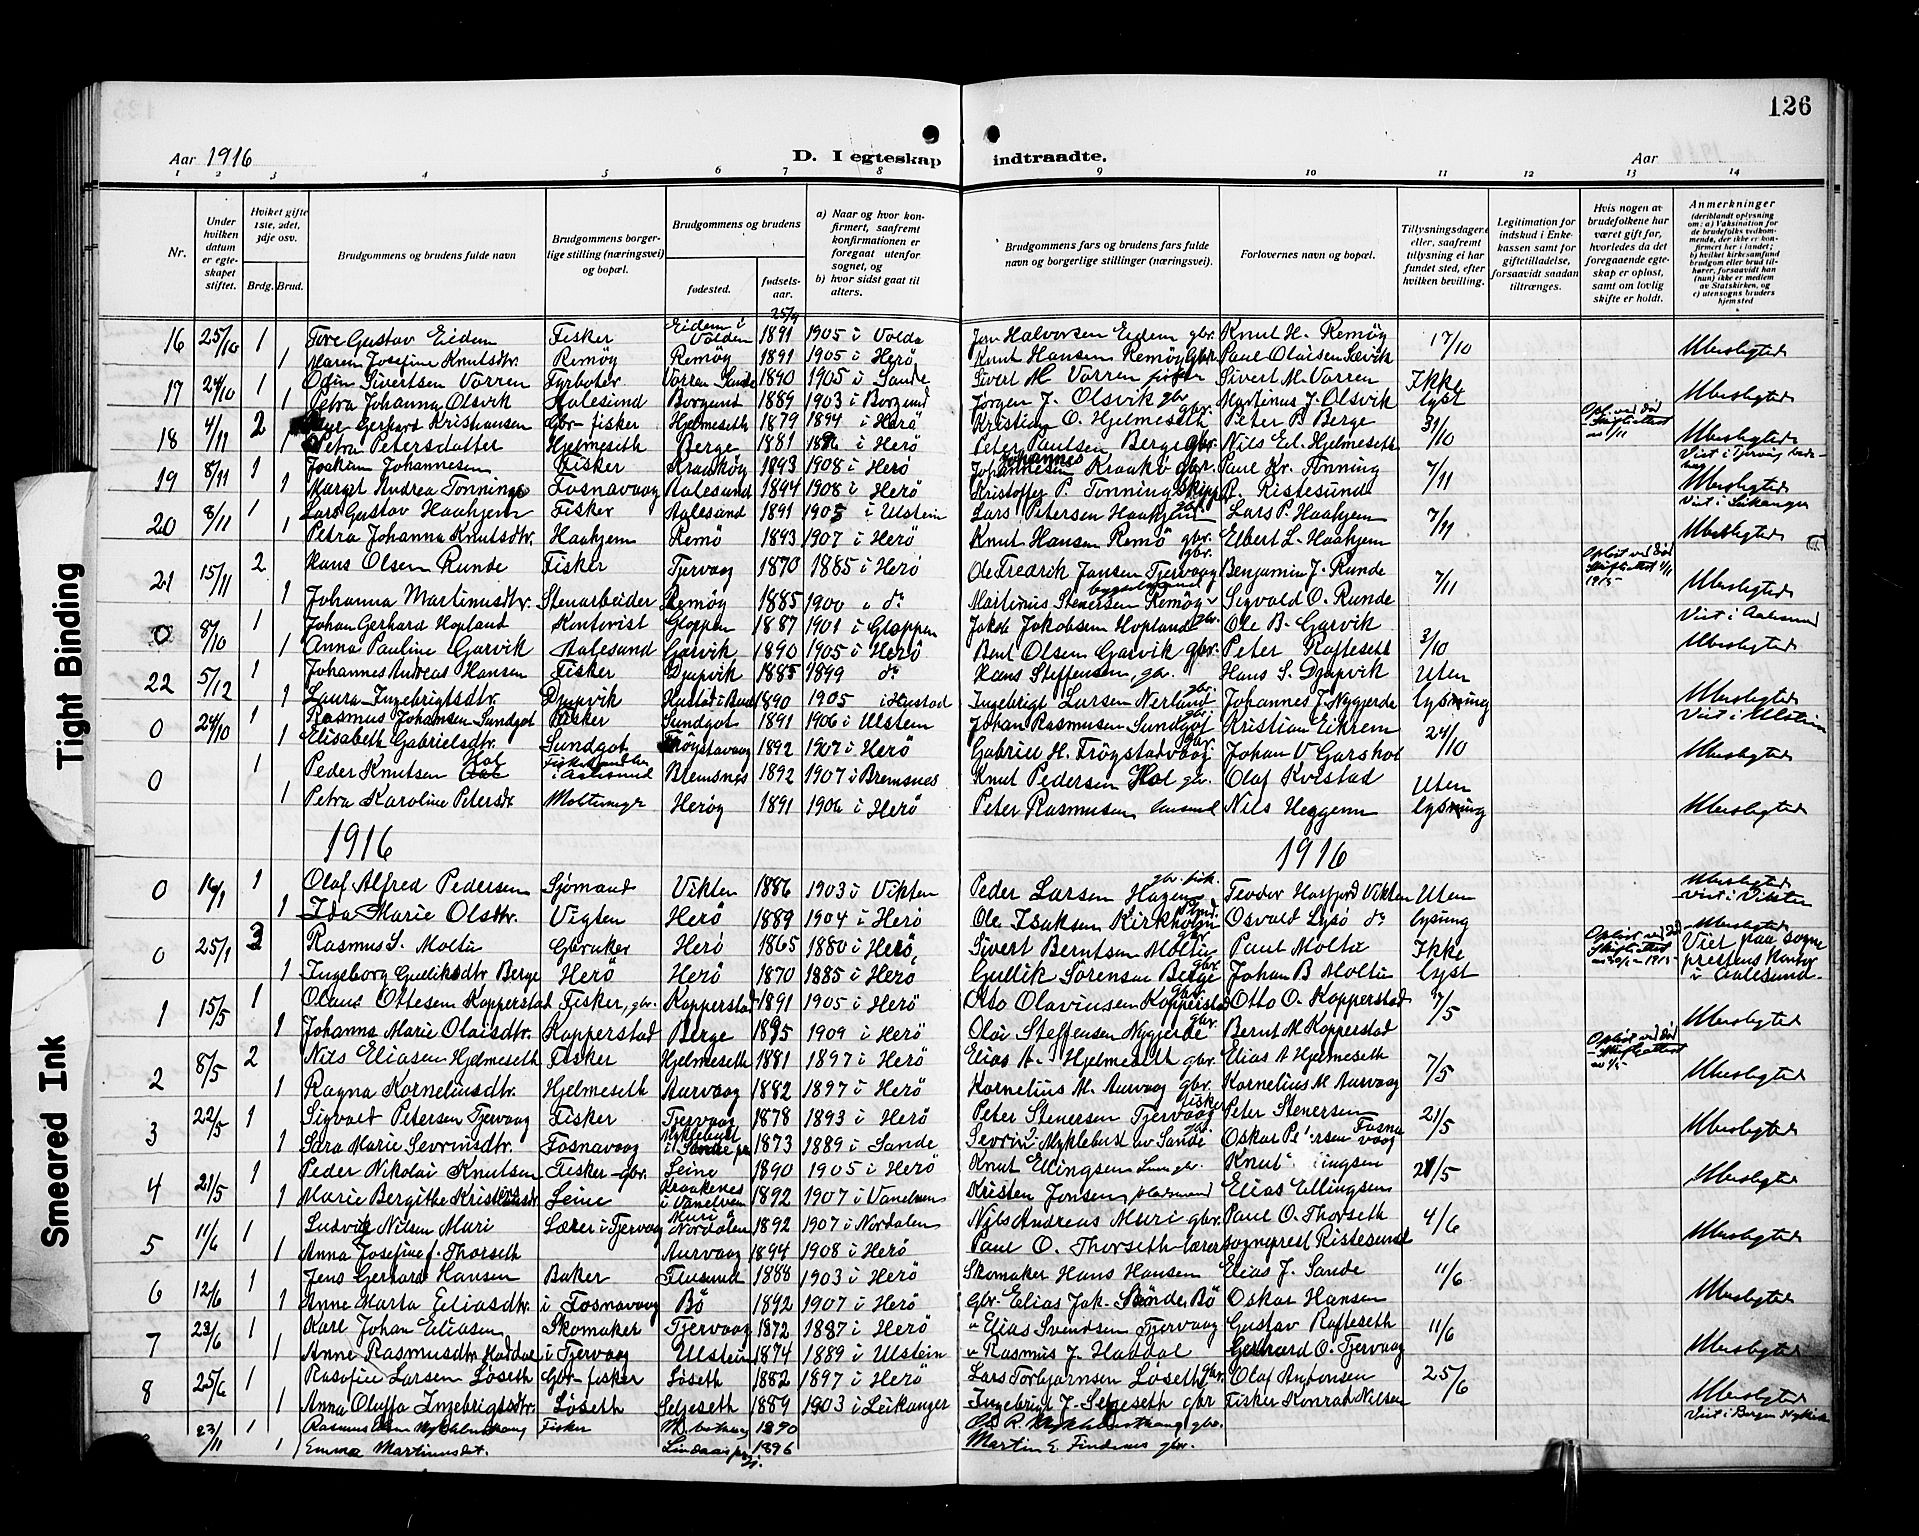 126
Aar 1916
D. I egteskap indtraadte.
Aar
1 2 3 4 5 6 7 8 9 10 11 12 13 14
Nr.
Under hvilken datum er egteskapet stiftet.
Hviket gifte 1ste, 2det, 3dje osv.
Brdg. Brud.
Brudgommens og brudens fulde navn
Brudgommens borgerlige stilling (næringsvei) og bopæl.
Brudgommens og brudens
fødested.
fødselsaar.
a) Naar og hvor konfirmert, saafremt konfirmationen er foregaat utenfor sognet, og
b) hvor sidst gaat til alters.
Brudgommens fars og brudens fars fulde navn og borgerlige stillinger (næringsvei).
Forlovernes navn og bopæl.
Tillysningsdagene eller, saafremt tillysning ei har fundet sted, efter hvilken bevilling.
Legitimation for indskud i Enkekassen samt for giftetilladelse, forsaavidt saadan tiltrænges.
Hvis nogen av brudefolkene har været gift før, hvorledes da det foregaaende egteskap er opløst, samt om lovlig skifte er holdt.
Anmerkninger
(deriblandt oplysning om: a) Vaksination for de brudefolks vedkommende, der ikke er konfirmert her i landet; b) hvilket kirkesamfund brudgom eller brud tilhører, forsaavidt han (hun) ikke er medlem av Statskirken, og c) utensogns bruders hjemsted
16 25/10 1 Tore Gustav Eidem Fisker Eidem i Volden 25/9 1891 1905 i Volda Jon Halvorsen Eidem gbr. Knut H. Remøy 17/10
1 Maren Josefine Knutsdtr. Remøy Remøy 1891 1905 i Herö Knut Hansen Remøy Gbr. Paul Olaisen Sævik Ubeslegted
17 24/10 1 Odin Sivertsen Vorren Fyrbøter Vorren Sande 1890 1905 i Sande Sivert M. Vorren fisker Sivert M. Vorren Ikke
1 Petra Johanna Olsvik Aalesund Borgund 1889 1903 i Borgund Jørgen J. Olsvik gbr Martinus J. Olsvik lyst Ubeslegted
18 4/11 2 Gerhard Kristiansen Gbr-fisker Hjelmeseth 1879 1894 i Herö Kristian O. Hjelmeseth gbr. Peter P Berge 31/10
1 Petra Petersdatter Hjelmeseth Berge 1881 1896 i Herö Peter Paulsen Berge gbr. Nils Ed. Hjelmeseth Ubeslegted
19 8/11 1 Joakim Johannesen Fisker Kraakøy 1893 1908 i Herö Johannes Johannesen Kraakö gbr. Paul Kr. Tonning 7/11
1 Margit Andrea Tonning Fosnavaag Aalesund 1894 1908 i Herö Kristoffer P. Tonning Skipper P. Ristesund Ubeslegted
20 8/11 1 Lars Gustav Haahjem Fisker Aalesund 1891 1905 i Ulstein Lars Petersen Haahjem gbr Lars P. Haahjem 7/11 Viet i Leikanger
1 Petra Johanna Knutsdtr. Haahjem Remö 1893 1907 i Herö Knut Hansen Remö gbr. Elbert L. Haahjem Ubeslegted
21 15/11 2 Hans Olsen Runde Fisker Tjervaag 1870 1885 i Herö Ole Fredrik Jansen Tjervaag gbr. Benjamin J. Runde 7/11
1 Johanna Martinusdtr. Stenarbeider Remöy 1885 1900 " do Martinus Stenersen Remöy Sigvald O. Runde Ubeslegted
0 8/10 1 Johan Gerhard Hopland Kontorist Gloppen 1887 1901 i Gloppen Jakob Jakobsen Hopland gbr. Ole B. Garvik Viet i Aalesund
1 Anna Pauline Garvik Aalesund Garvik 1890 1905 i Herö Bent Olsen Garvik gbr. Peter Rafteseth 3/10 Ubeslegted
22 5/12 1 Johannes Andreas Hansen Fisker Djupvik 1885 1899 do Hans Steffensen, gbr. Hans S. Djupvik Uten
1 Laura Ingebrigtsdtr. Djupvik Hustad i Bud 1890 1905 i Hustad Ingebrigt Larsen Nerland gbr. Johannes J. Nygjerde lysning Ubeslegted
0 24/10 1 Rasmus Johansen Sundgot Fisker Sundgot 1891 1906 i Ulstein Johan Rasmussen Sundgot gbr. Kristian Eikrem 24/10 Viet i Ulstein
1 Elisabeth Gabrielsdtr. Sundgot Frøystavaag 1892 1907 i Herö Gabriel H. Frögstadvaag gbr. Johan V Garshol Ubeslegted
0 1 Peder Knutsen Hol i Aalesund Bremsnes 1892 1907 i Bremsnes Knut Pedersen Hol gbr. Olaf Kvistad Uten
1 Petra Karoline Petersdtr Moltumyr Herøy 1891 1906 i Herö Peter Rasmussen husmd Nils Heggem lysning Ubeslegted
1916 1916
0 16/1 1 Olaf Alfred Pedersen Sjømand Vikten 1886 1903 i Vikten Peder Larsen Hagen gbr. fisk. Teodor Hasfjord Vikten Uten Ubeslegted
1 Ida Marie Olsdtr. Vigten Herö 1889 1904 i Herö Ole Isaksen Kirkholm Osvald Lysö do lysning viet i Vikten
0 25/1 3 Rasmus S. Moltu Gbruker Herö 1865 1880 i Herö Sivert Berntsen Moltu gbr Paul Moltu Ikke Ubeslegted
1 Ingeborg Gulliksdtr Berge Herö Herö 1870 1885 i Herö Gullik Sörensen Berge gbr Johan B Moltu lyst Viet paa sogneprestens kontor i Aalesund
1 15/5 1 Olaus Ottesen Kopperstad Fisker, gbr. Kopperstad 1891 1905 i Herö Otto Olavinsen Kopperstad gbr. Otto O. Kopperstad 7/5
1 Johanna Marie Olaisdtr. Kopperstad Berge 1895 1909 i Herö Olai Steffensen Nygjerde gbr. Bernt M. Kopperstad Ubeslegted
2 8/5 2 Nils Eliasen Hjelmeseth Fisker Hjelmeseth 1881 1897 i Herö Elias A. Hjelmeseth gbr. Elias A Hjelmeseth 7/5
1 Ragna Korneliusdtr. Hjelmeseth Aurvaag 1882 1897 i Herö Kornelius M. Aurvaag gbr. Kornelius M Aurvaag Ubeslegted
3 22/5 1 Sigvald Petersen Tjervaag Fisker Tjervaag 1878 1893 i Herö Peter Stenersen Tjervaag fisker Peter Stenersen 21/5
1 Sara Marie Sevrinsdtr. Fosnavaag Myklebust i Sande 1873 1889 i Sande Sevrin Myklebust av Sande gbr. Oskar Petersen Fosnavaag Ubeslegted
4 21/5 1 Peder Nikolai Knutsen Fisker-gbr. Leine 1890 1905 i Herö Knut Ellingsen Leine gbr. Knut Ellingsen 21/5
1 Marie Bergithe Kristensdtr Leine Kraakenes i Vanelven 1892 1907 i Vanelven Kristen Jonsen pladsmand Elias Ellingsen Ubeslegted
5 11/6 1 Ludvig Nilsen Muri Lærer i Tjervaag Muri i Nordalen 1892 1907 i Nordalen Nils Andreas Muri gbr. Paul O. Thorseth 4/6
1 Anna Josefine J. Thorseth Aurvaag 1894 1908 i Herö Paul O. Thorseth lærer sogneprest Ristesund Ubeslegted
6 12/6 1 Jens Gerhard Hansen Baker Flusund 1888 1903 i Herö Skomaker Hans Hansen Elias J. Sande 11/6
1 Anne Marta Eliasdtr. i Fosnavaag Bö 1892 1907 i Herö Gbr. Elias Jak. Sande, Bö Oskar Hansen Ubeslegted
7 23/6 1 Karl Johan Eliasen Skomaker Tjervaag 1872 1887 i Herö " Elias Svendsen Tjervaag Gustav Rafteseth 11/6
1 Anne Rasmusdtr Haddal i Tjervaag Ulstein 1874 1889 i Ulstein " Rasmus J. Haddal Gerhard O. Tjervaag Ubeslegted
8 25/6 1 Rasofine Larsen Löseth Gbr-fisker Löseth 1882 1897 i Herö Lars Torbjørnsen Løseth gbr. Olaf Antonsen 25/6
1 Anna Oluffa Ingebrigtsdtr. Löseth Seljeseth 1889 1903 i Leikanger Ingebrigt J. Seljeseth gbr Fisker Konrad Nilsen Ubeslegted
23/11 1 Rasmus Fisker 1890 Ole R. gbr. Viet i Bergen
1 Emma Martinusdt. Lindaas 1896 Martin E. Findenes gbr.
Tight Binding
Smeared Ink